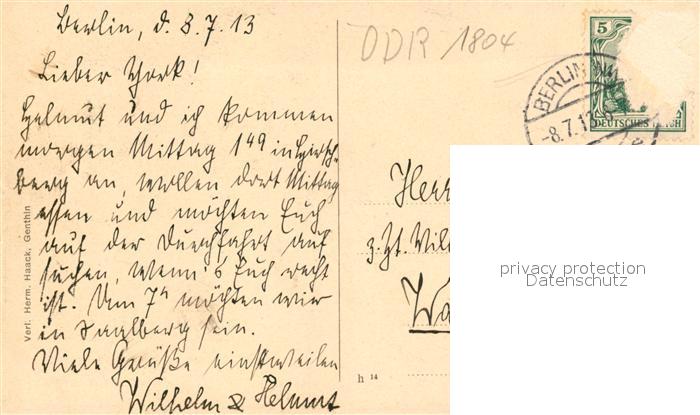 Berlin, d. 8.7.13
Lieber York!
Helmut und ich kommen
morgen Mittag 1 49 in Hirsch-
berg an, wollen dort Mittag
essen und möchten Euch
auf der Durchfahrt auf
suchen, wenn's Euch recht
ist. Um 7 h möchten wir
in Saalberg sein.
Viele Grüße einstweilen
Wilhelm & Helmut
Verl. Herm. Haack, Genthin
DDR 1804
5
DEUTSCHES REICH
BERLIN
-8.7.13.
Herr
z. Zt.
Wa
h 14
privacy protection
Datenschutz